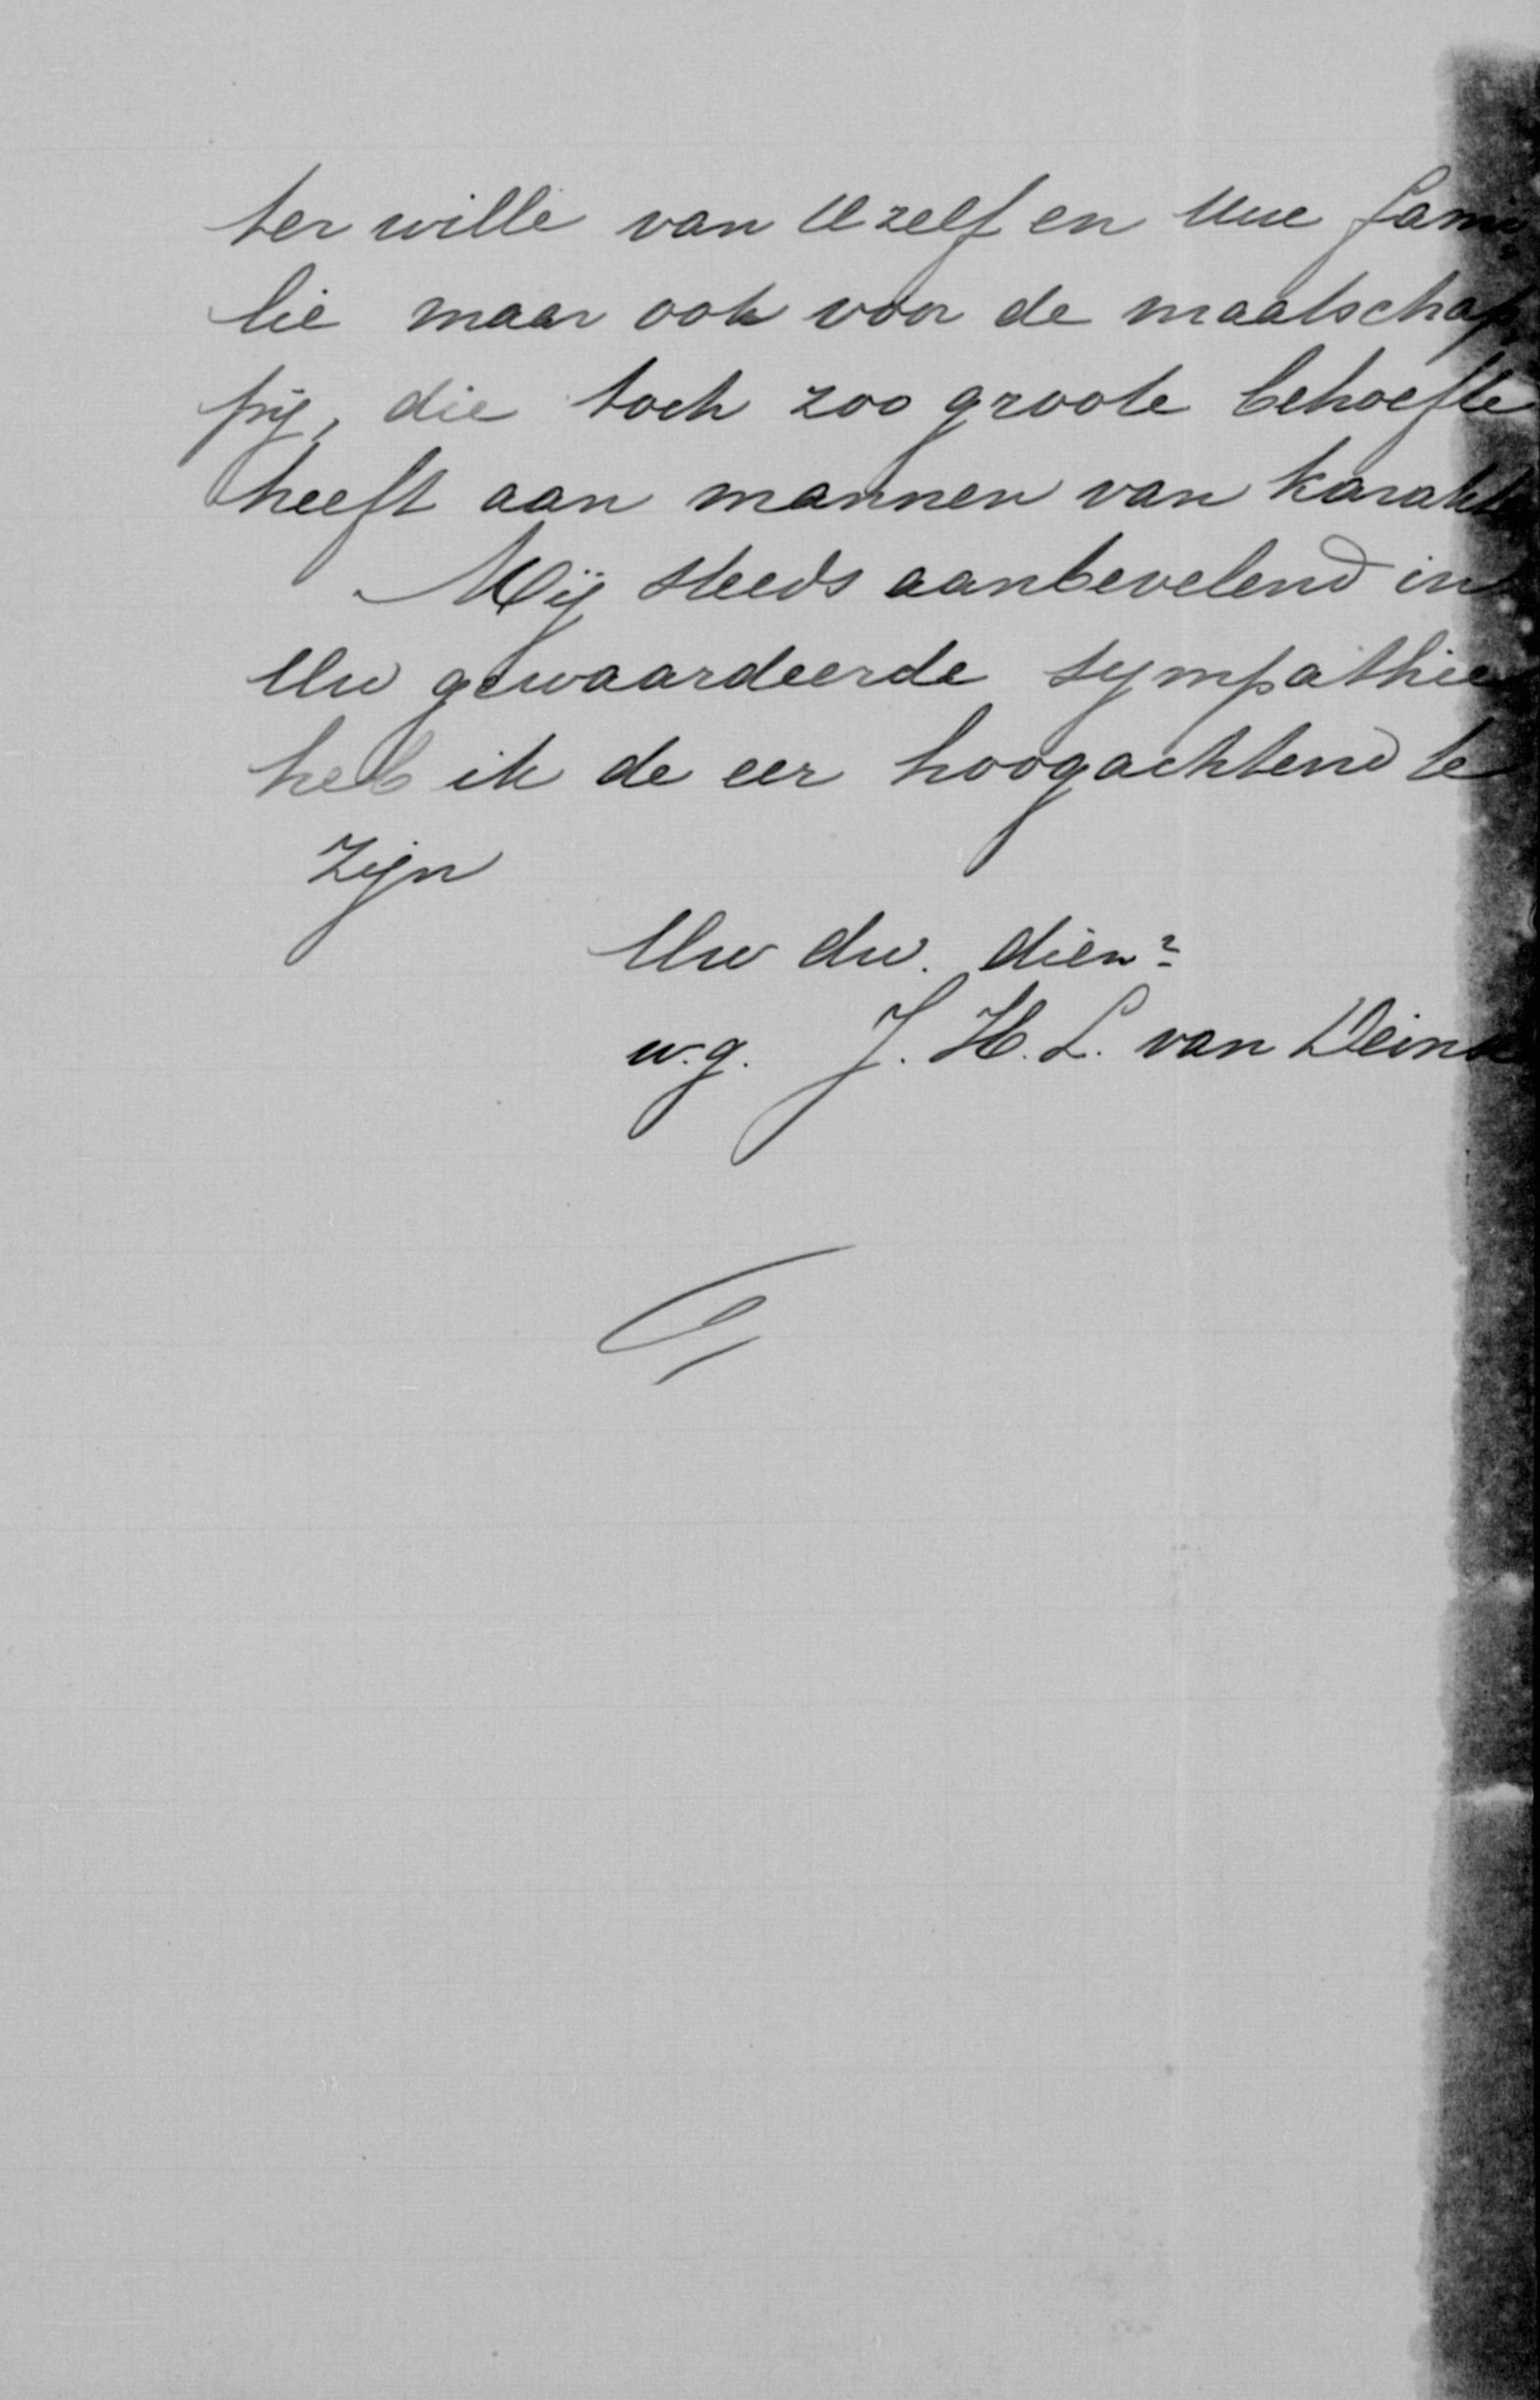 ter wille van Uzelf en Uwe fami
lie maar ook voor de maatschap
pij, die toch zoo groote behoefte
heeft aan mannen van karakte
Mij steeds aanbevelend in
Uw gewaardeerde sympathie
heb ik de eer hoogachtend te
zijn
Uw dw. dienr
w.g. J. H. L. van Deinse